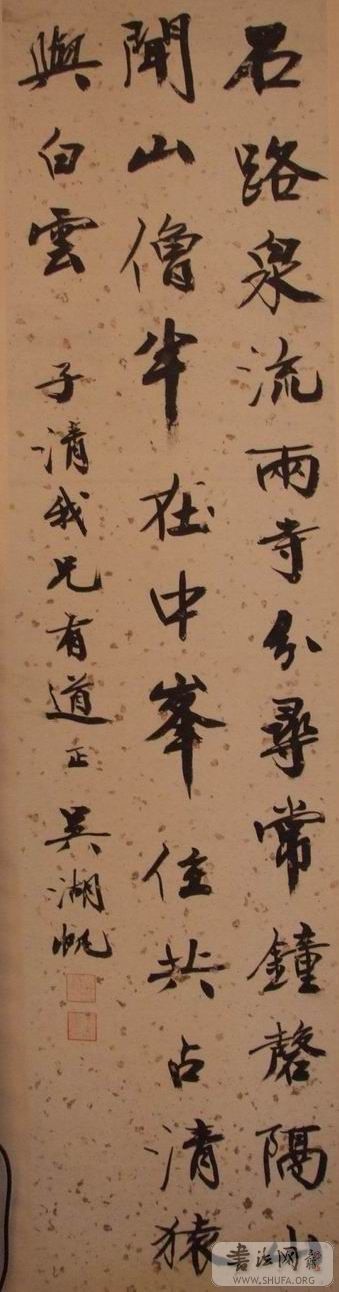 石路泉流兩寺分尋常鐘磬隔山
聞山僧半在中峯住共占清猿
與白雲 子清我兄有道正 吳湖帆
書法网
WWW.SHUFA.ORG